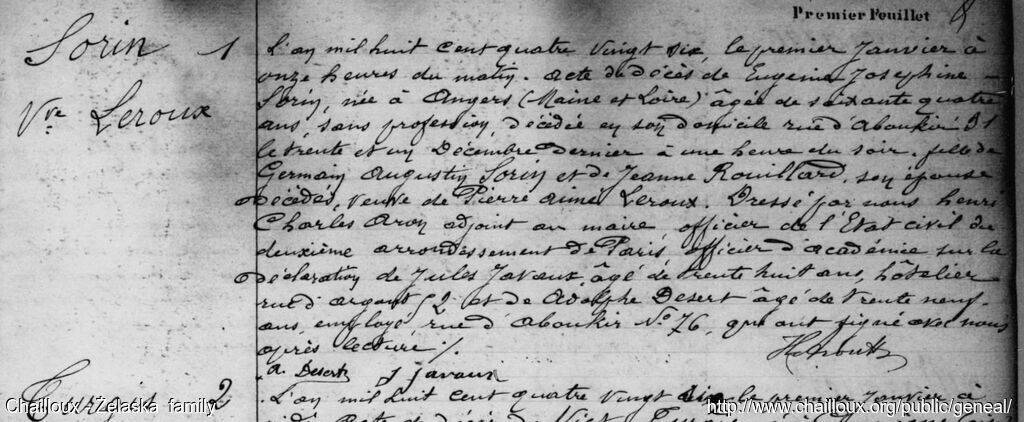 Premier Feuillet
Sorin 1
Vve Leroux
L'an mil huit cent quatre vingt dix, le premier Janvier à
onze heures du matin. acte de décès de Eugénie Josephine
Sorin, née à Angers (Maine et Loire) âgée de soixante quatre
ans, sans profession, décédée en son domicile rue d'Aboukir 31
le trente et un Décembre dernier à une heure du soir. fille de
Germain Augustin Sorin et de Jeanne Rouillard, son épouse
décédés, veuve de Pierre Aimé Leroux. Dressé par nous henri
Charles Aron adjoint au maire, officier de l'Etat civil du
deuxième arrondissement de Paris, officier d'académie sur la
déclaration de Jules Javaux, âgé de trente huit ans, hôtelier
rue d'argout 52 et de Adolphe Desert âgé de trente neuf
ans, employé, rue d'Aboukir No 76, qui ont signé avec nous
après lecture ./.
A. Desert J Javaux
2
L'an mil huit cent quatre vingt dix le premier Janvier à
Chailloux / Želaska family
http://www.chailloux.org/public/geneal/